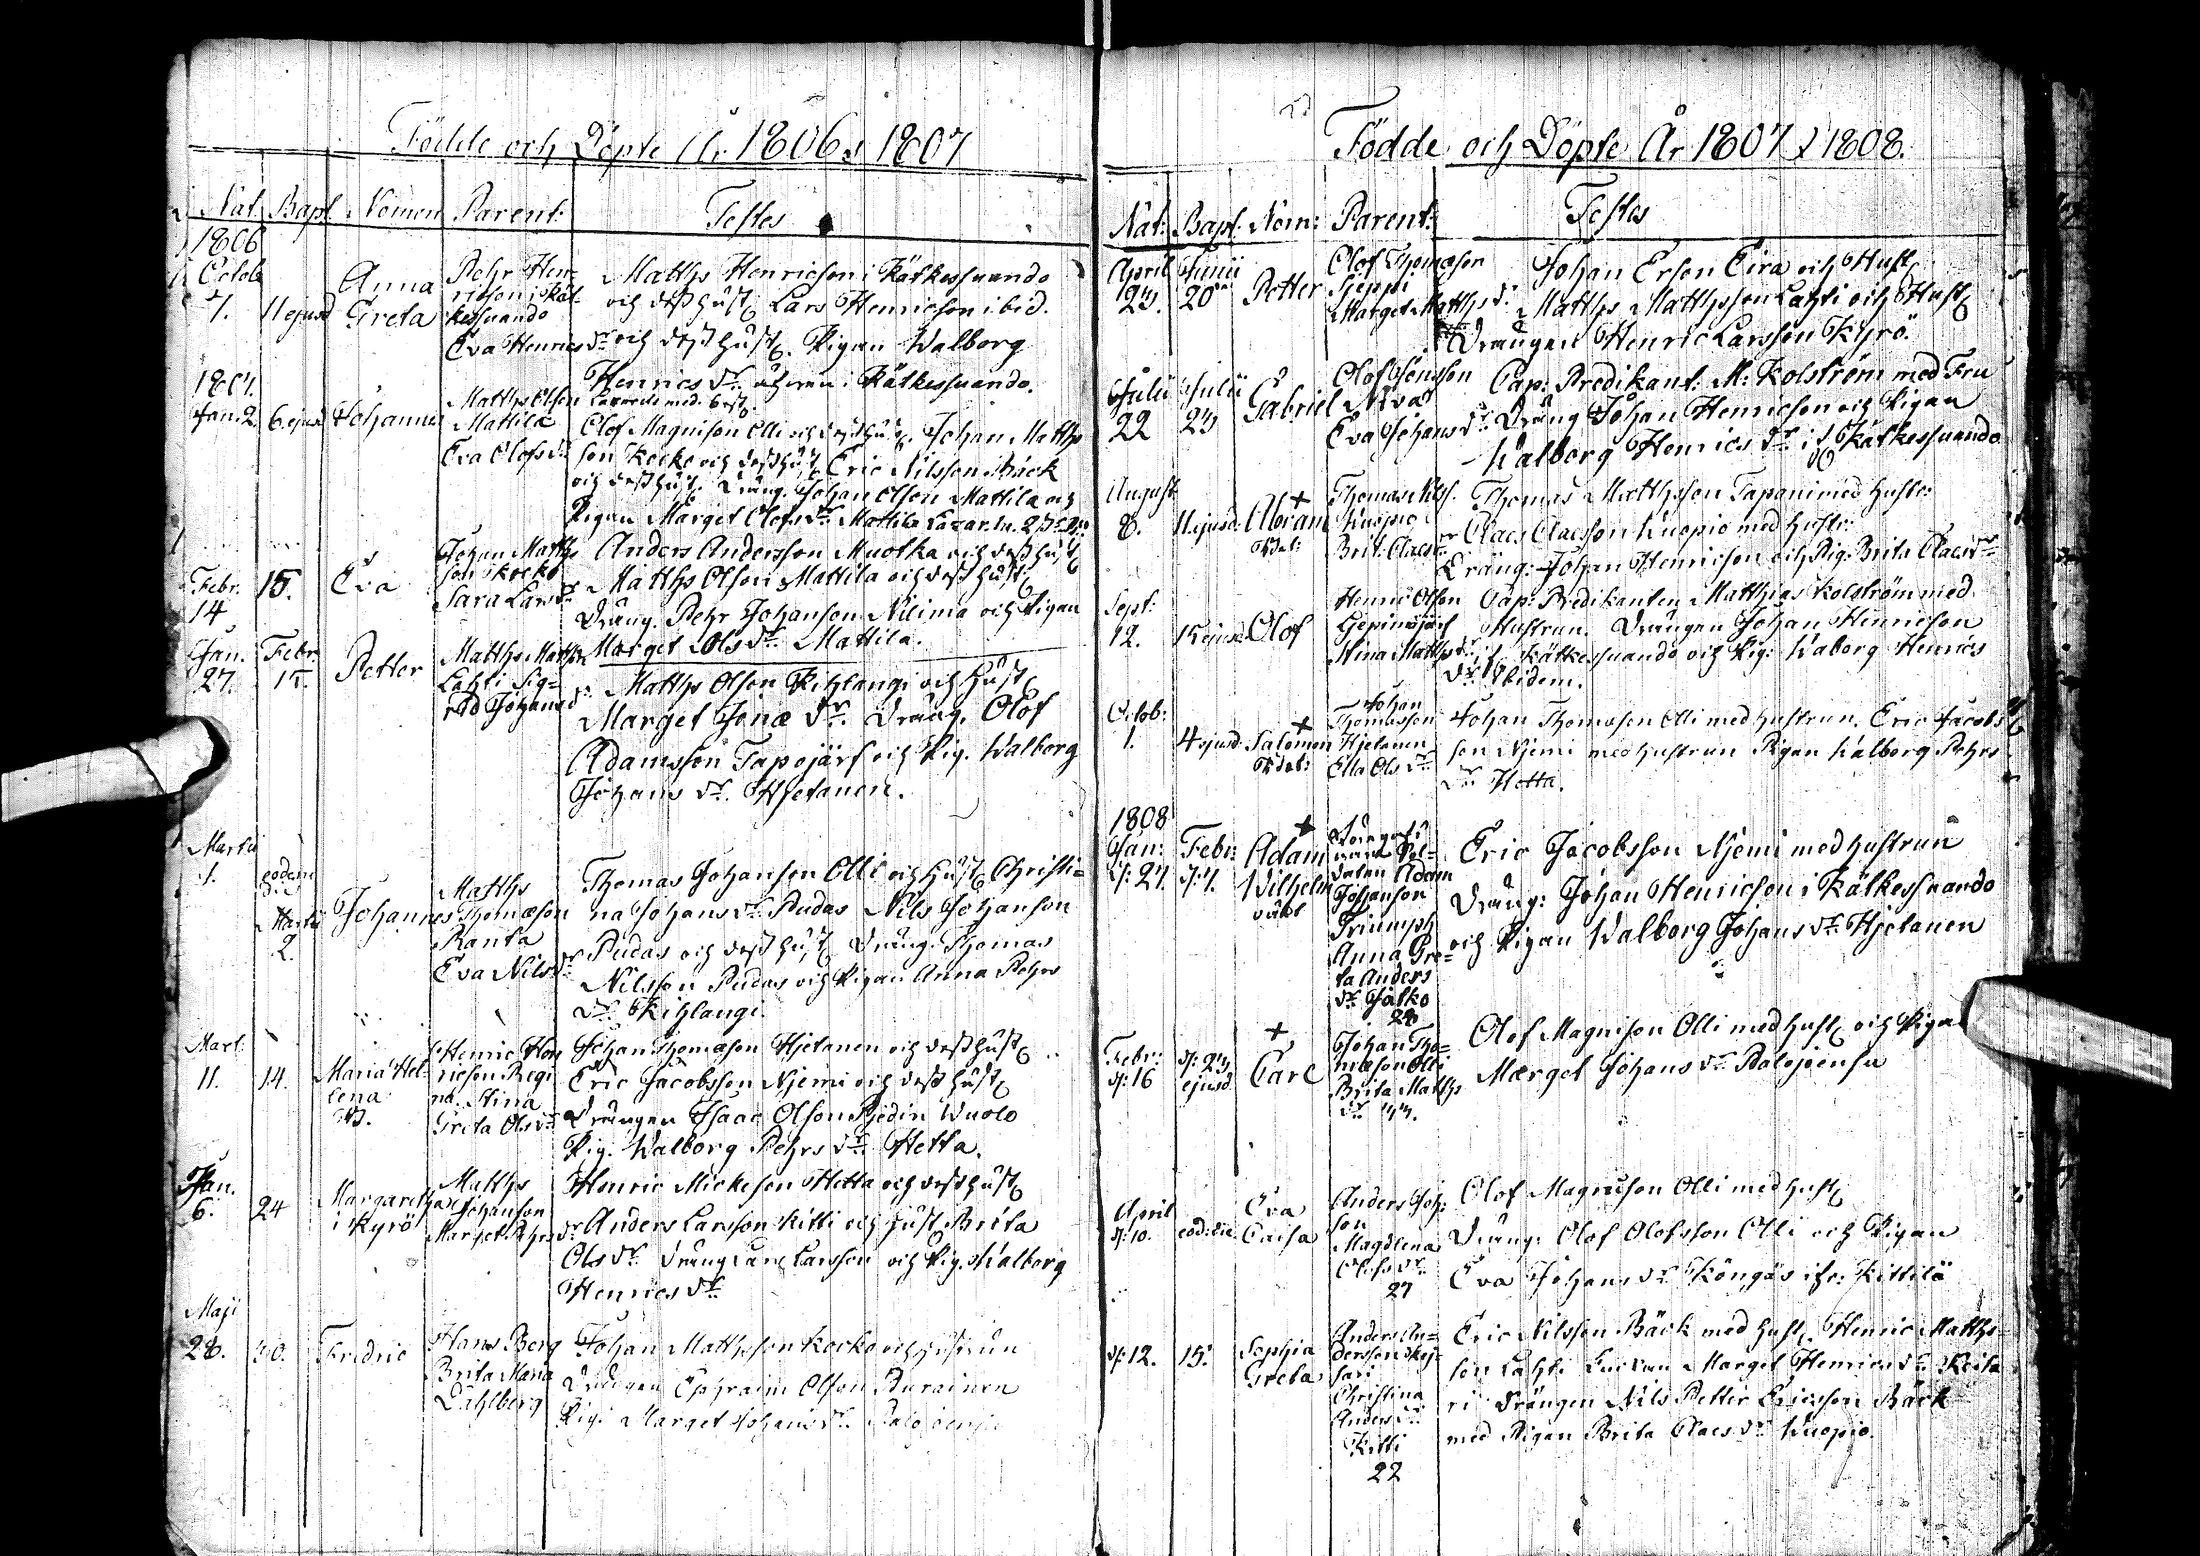 Födde och Döpte År 1806 & 1807
Nat. Bapt. Nomen Parent: Testes
1806
Octob. 7. 11 ejusd Anna Greta
Pehr Hen-
ricson i Kät-
kessuando
Eva Henrics dr
Matths Henricson i Kätkessuando
och dess hust. Lars Henricson ibid.
och dess hust. Pigan Walborg
Henrics dr i Kätkessuando.
1807.
Jan. 2. 6. ejusd Johannes
Matths Olsson
Mattila
Eva Olofs dr
Olof Magnison Olli och dess hust. Johan Matths
son Kocko och dess hust. Eric Nilsson Bäck
och dess hust. Dräng. Johan Olsson Mattila och
Pigan Marget Olofs dr Mattila
Febr. 14 15. Eva
Johan Matths
son Kocko
Sara Lars dr
Anders Andersson Muotka och dess hust
Matths Olsson Mattila och dess hust
Dräng. Pehr Johanson Nilima och Pigan
Marget Ols dr Mattila.
Jan. 27. Febr. 15. Petter
Matths Matths
Lahti Sig-
rid Johans dr
Matths Olsson Kihlangi och hust
Marget Jonæ dr. Dräng. Olof
Adamsson Tapojärf och Pig. Walborg
Johans dr. Hjetanen.
Martii 1. eodem die
Martii 2. Johannes
Matths
Thomæson
Ranta
Eva Nils dr
Thomas Johanson Olli och hust. Christi-
na Johans dr Pudas Nils Johanson
Pudas och dess hust. Dräng. Thomas
Nilsson Pudas och Pigan Anna Pehrs
dr Kihlangi.
Mart. 11. 14. Maria Hel-
lena
Henric Hen
ricson Regi
na Stina
Greta Ols dr
Johan Thomæson Hjetanen och dess hust
Eric Jacobsson Njemi och dess hust
Drängen Isaac Olsson Wuolo
Pig. Walborg Pehrs dr Hetta.
Jan. 6. 24 Margaretha
i Kyrö
Matths
Johanson
Marget Pehrs dr
Henric Mickeson Hetta och dess hust
Anders Larsson Kitti och hust. Brita
Ols dr Dräng Lars Larsson och Pig. Walborg
Henrics dr
Maji 28. 30. Fredric
Hans Berg
Brita Maria
Dahlberg
Johan Matthsson Kocko och hustrun
Drängen Ephraim Olsson Purainen
Pig. Marget Johans dr Palojoensu
Födde och Döpte År 1807 & 1808.
Nat: Bapt: Nom: Parent: Testes
April 23. Junii 20 Petter
Olof Thomæson
Sieppi
Marget Matths dr
Johan Erson Eira och Hust
Matths Matthsson Lahti och Hust
Drängen Henric Larsson Kyrö.
Julii 22 Julii 23 Gabriel
Olof Jönsson
Niva
Eva Johans dr
Cap: Predikant: M: Kolström med Fru
Dräng Johan Henricson och Pigan
Walborg Henrics dr i Kätkessuando
August 8. 11. ejusd. Abram
Thomas Nils.
Kuopio
Brit: Claes dr
Thomas Matthsson Tapani med hustr:
Claes Claesson Kuopio med hustr:
Dräng: Johan Henricson och Pig: Brita Claes dr
Sept: 12. 15 ejusd Olof
Henric Olsson
Gepinejärf
Stina Matths dr
Cap: Predikanten Matthias Kolström med
Hustrun. Drängen Johan Henricson
i Kätkessuando och Pig: Waborg Henrics
dr ibidem.
Octob: 1. 4 ejusd. Salomon
Johan
Thomæsson
Hjetanen
Ella Ols dr
Johan Thomæson Olli med hustrun. Eric Jacobs
son Njemi med hustrun Pigan Walborg Pehrs
dr Hetta.
1808
Jan: d: 27. Febr: d: 7. Adam
Wilhelm
daten Adam
Johanson
Triumph
Anna Gre-
ta Anders
dr Jalko
28
Eric Jacobsson Njemi med hustrun
Dräng: Johan Henricson i Kätkessuando
och Pigan Walborg Johans dr Hjetanen
Febr: d: 16 d: 23 ejusd. Carl
Johan Tho-
mæson Olli
Brita Matths
dr 44.
Olof Magnison Olli med hust. och Piga
Marget Johans dr Palojoensu
April d: 10. eod: die Eva
Caisa
Anders Joh:
son
Magdlena
Olofs dr
27
Olof Magnison Olli med hust
Dräng: Olof Olofsson Olli och Pigan
Eva Johans dr Köngäs ifr: Kittilä
d: 12. 15. Sophia
Greta
Anders An-
dersson Kej-
sari
Christina
Anders dr
Kitti
22
Eric Nilsson Bäck med hust. Henric Matths-
son Lahti Marget Henrics dr Keisa
ri Drängen Nils Petter Ericsson Bäck
med Pigan Brita Claes dr Kuopio.